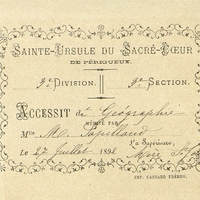 Sainte-Ursule du Sacré-Cœur
DE PÉRIGUEUX.
3e Division. 3e Section.
Accessit de Géographie
MÉRITÉ PAR
Mlle M. Papillaud
La Supérieure,
Le 27 Juillet 1898
IMP. CASSARD FRÈRES.